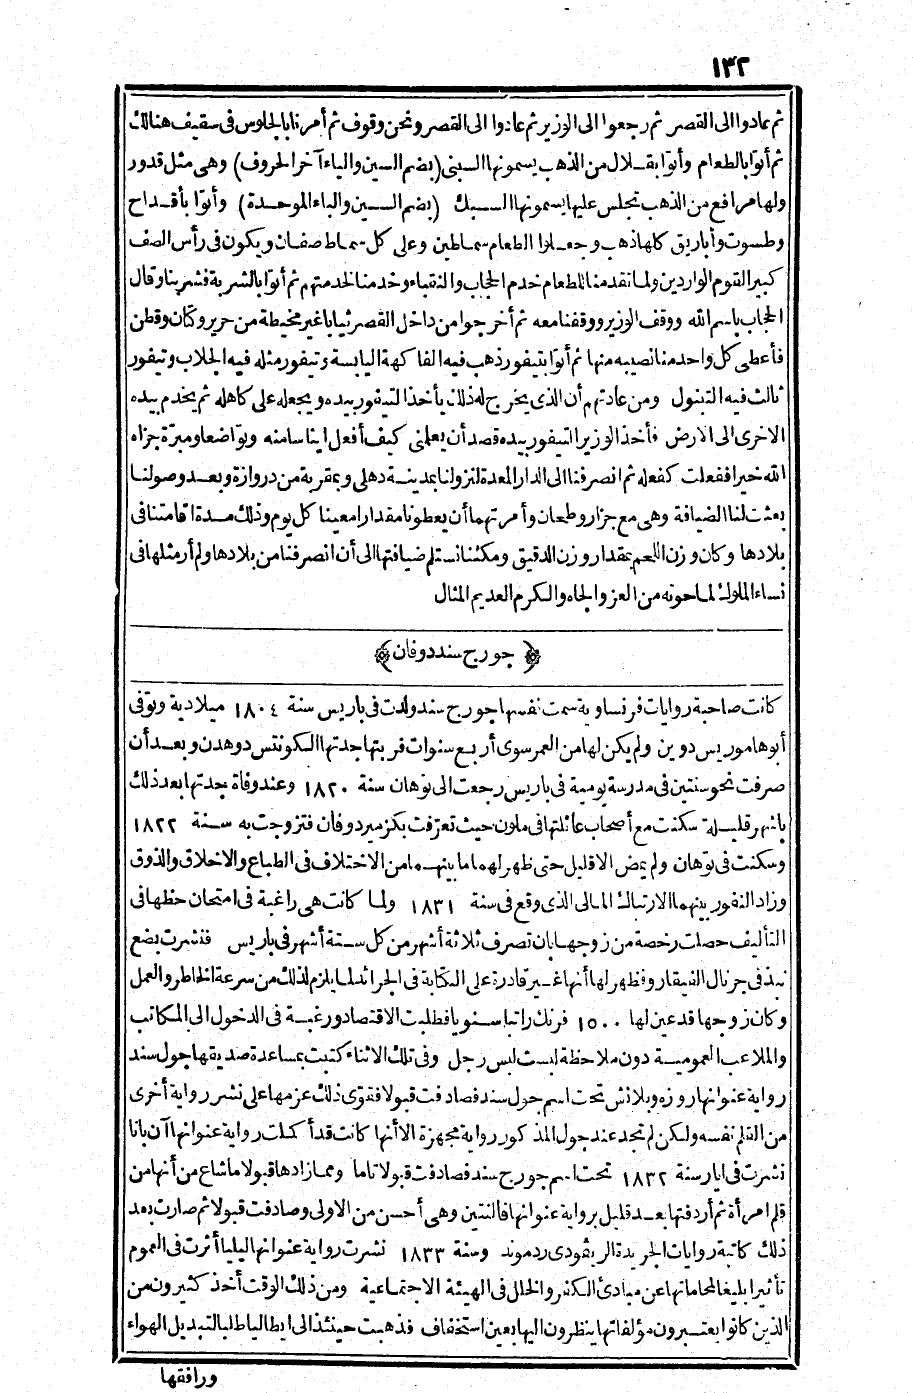 ١٣٢
ثم عادوا الى القصر ثم رجعوا الى الوزير ثم عادوا الى القصر ونحن وقوف ثم أمرنا بالجلوس فى سقيف هنالك
ثم أتوا بالطعام وأتوا بقلال من الذهب يسمونها السبنى (بضم السين والياء آخر الحروف) وهى مثل قدور
ولها مرافع من الذهب تجلس عليها يسمونها السبك (بضم السين والباء الموحدة) وأتوا بأقداح
وطسوت وأباريق كلها ذهب وجعلوا الطعام سماطين وعلى كل سماط صفان ويكون فى رأس الصف
كبير القوم الواردين ولما تقدمنا للطعام خدم الحجاب والنقباء وخدمنا لخدمتهم ثم أتوا بالشربة فشربنا وقال
الحجاب باسم الله ووقف الوزير ووقفنا معه ثم أخرجوا من داخل القصر ثيابا غير مخيطة من حرير وكتان وقطن
فأعطى كل واحد منا نصيبه منها ثم أتوا بتيفور ذهب فيه الفاكهة اليابسة وتيفور مثله فيه الجلاب وتيفور
ثالث فيه التنبول ومن عادتهم أن الذى يخرج له ذلك يأخذ التيفور بيده ويجعله على كاهله ثم يخدم بيده
الاخرى الى الارض فأخذ الوزير التيفور بيده قصد أن يعلمنى كيف أفعل ايناسا منه وتواضعا ومبرة جزاه
الله خيرا ففعلت كفعله ثم انصرفنا الى الدار المعدة لنزولنا بمدينة دهلى وبمقربة من دروازة وبعد وصولنا
بعثت لنا الضيافة وهى مع جزار وطحان وأمرتهما أن يعطونا مقدارا معينا كل يوم وذلك مدة اقامتنا فى
بلادها وكان وزن اللحم بمقدار وزن الدقيق ومكثنا نستلم ضيافتها الى أن انصرفنا من بلادها ولم أر مثلها فى
نساء الملوك لما حوته من العز والجاه والكرم العديم المثال
﴿جورج سند دوفان﴾
كانت صاحبة روايات فرنساوية سمت نفسها جورج سند ولدت فى باريس سنة ١٨٠٤ ميلادية وتوفى
أبوها موريس دوبن ولم يكن لها من العمر سوى أربع سنوات فربتها جدتها الكونتس دوهدن وبعد أن
صرفت نحو سنتين فى مدرسة يومية فى باريس رجعت الى نوهان سنة ١٨٢٠ وعند وفاة جدتها بعد ذلك
باشهر قليلة سكنت مع أصحاب عائلتها فى ملون حيث تعرفت بكزمير دوفان فتزوجت به سنة ١٨٢٢
وسكنت فى نوهان ولم يمض الا قليل حتى ظهر لهما ما بينهما من الاختلاف فى الطباع والاخلاق والذوق
وزاد النفور بينهما الارتباك المالى الذى وقع فى سنة ١٨٣١ ولما كانت هى راغبة فى امتحان حظها فى
التأليف حصلت رخصة من زوجها بان تصرف ثلاثة أشهر من كل ستة أشهر فى باريس فنشرت بضع
نبذ فى جرنال الفيقارو فظهر لها أنها غير قادرة على الكتابة فى الجرائد لما يلزم لذلك من سرعة الخاطر والعمل
وكان زوجها قد عين لها ١٥٠٠ فرنك راتبا سنويا فطلبت الاقتصاد ورغبة فى الدخول الى المكاتب
والملاعب العمومية دون ملاحظة لبست لبس رجل وفى تلك الاثناء كتبت بمساعدة صديقها جول سند
رواية عنوانها روزه وبلانش تحت اسم جول سند فصادفت قبولا فقوى ذلك عزمها على نشر رواية أخرى
من القلم نفسه ولكن لم تجد عند جول المذكور رواية مجهزة الا أنها كانت قد أكملت رواية عنوانها آن يانا
نشرت فى ايار سنة ١٨٣٢ تحت اسم جورج سند فصادفت قبولا تاما ومما زادها قبولا ما شاع من أنها من
قلم امرأة ثم أردفتها بعد قليل برواية عنوانها فالنتين وهى أحسن من الاولى وصادفت قبولا ثم صارت بعد
ذلك كاتبة روايات الجريدة الريفودى ردموند وسنة ١٨٣٣ نشرت رواية عنوانها ليليا أثرت فى العموم
تأثيرا بليغا لمحاماتها عن مبادئ الكفر والخلل فى الهيئة الاجتماعية ومن ذلك الوقت أخذ كثيرون من
الذين كانوا يعتبرون مؤلفاتها ينظرون اليها بعين استخفاف فذهبت حينئذ الى ايطاليا طلبا لتبديل الهواء
ورافقها